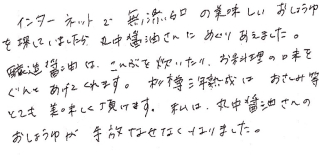 インターネットで無添加の美味しいおしょうゆ
を探していましたら、丸中醤油さんにめぐりあえました。
醸造醤油は、こんぶを炊いたり、お料理の味を
ぐんとあげてくれます。 三年熟成は おさしみ等
とても美味しく頂けます。私は、丸中醤油さんの
おしょうゆが手放なせなくなりました。